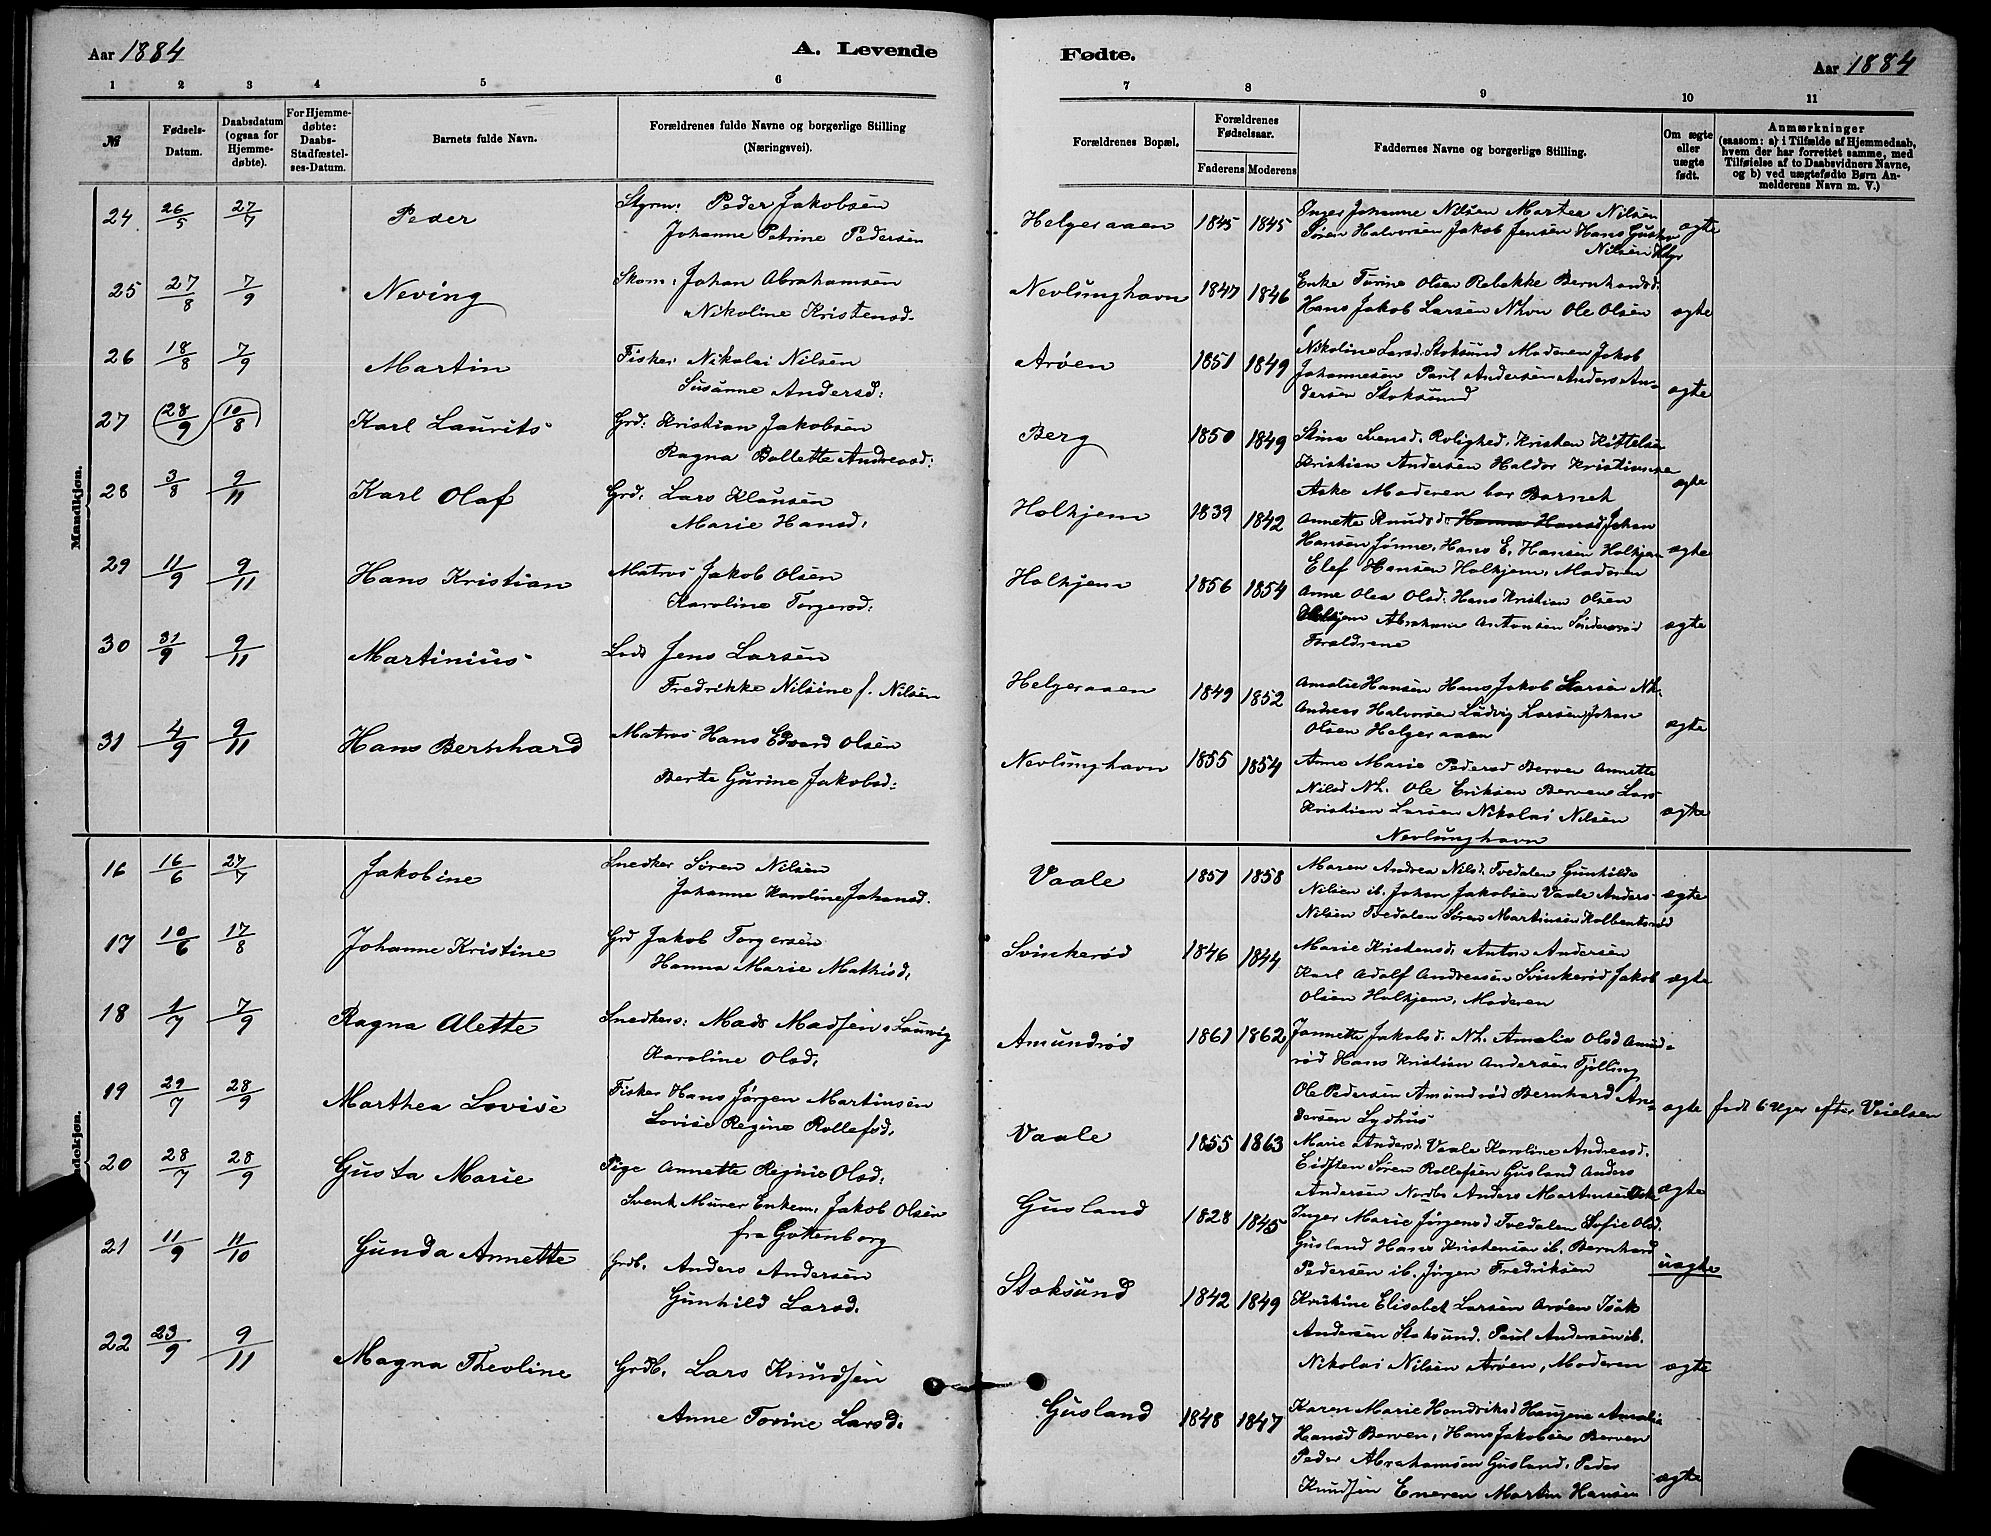 Aar 1884
A. Levende
1 2 3 4 5 6
№
Fødsels-Datum.
Daabsdatum (ogsaa for Hjemme-døbte).
For Hjemme-døbte: Daabs-Stadfæstel-ses-Datum.
Barnets fulde Navn.
Forældrenes fulde Navne og borgerlige Stilling
(Næringsvei).
Mandkjøn.
24 26/5 27/7 Peder Styrm: Peder Jakobsen
Johanne Petrine Pedersen
25 27/8 7/9 Neving Skom: Johan Abrahamsen
Nikoline Kristensd.
26 18/8 7/9 Martin Fisker Nikolai Nilsen
Susanne Andersd:
27 28/9 10/8 Karl Laurits Grd: Kristian Jakobsen
Ragna Bollette Andreasd:
28 3/8 9/11 Karl Olaf Grd. Lars Klausen
Marie Hansd.
29 11/9 9/11 Hans Kristian Matros Jakob Olsen
Karoline Torgersd:
30 31/9 9/11 Martinius Lods Jens Larsen
Fredrikke Nilsine f. Nilsen
31 4/9 9/11 Hans Bernhard Matros Hans Edvard Olsen
Berte Gurine Jakobsd:
16 16/6 27/7 Jakobine Snedker Søren Nilsen
Johanne Karoline Johansd.
17 10/6 17/8 Johanne Kristine Grd Jakob Torgersen
Hanna Marie Mathisd.
18 1/7 7/9 Ragna Alette Snedkers: Mads Madsen, Laurvig
Karoline Olsd.
19 29/7 28/9 Marthea Lovise Fisker Hans Jørgen Martinsen
Lovise Regine Rollefsd.
20 28/7 28/9 Gusta Marie Pige Annette Regine Olsd.
Svensk Murer Enkem. Jakob Olsen
fra Gøttenborg
21 11/9 11/10 Gunda Annette Grdb. Anders Andersen
Gunhild Larsd.
22 23/9 9/11 Magna Theoline Grdb. Lars Knudsen
Anne Torine Larsd.
Fødte.
Aar 1884
7 8 9 10 11
Forældrenes Bopæl.
Forældrenes Fødselsaar.
Faderens Moderens
Faddernes Navne og borgerlige Stilling.
Om ægte eller uægte født.
Anmærkninger
(saasom: a) i Tilfælde af Hjemmedaab,
hvem der har forrettet samme, med
Tilføielse af to Daabsvidners Navne,
og b) ved uægtefødte Børn An-
melderens Navn m. V.)
Helgeraaen 1845 1845 Inger Johanne Nilsen Martea Nilsen
Søren Halvorsen Jakob Jensen Hans Gustav ægte
Nilsen Hlgr
Nevlunghavn 1847 1846 Enke Torine Olsen Rebekke Bernhardsd.
Hans Jakob Larsen Nhvn Ole Olsen ægte
Arøen 1851 1849 Nikoline Larsd. Stoksund Moderen Jakob
Johannesen Paul Andersen Anders An-
dersen Stoksund ægte
Berg 1850 1849 Stina Svensd. Rolighed. Kristen Kittelsen
Kristian Andersen Haldor Kristiansen
Aske Moderen bar Barnet ægte
Holkjem 1839 1842 Annette Knudsd. Hanna Hansd Johan
Hansen Jønne. Hans E. Hansen Holkjem ægte
Elef Hansen Holkjem. Moderen
Holkjem 1856 1854 Anne Olea Olsd. Hans Kristian Olsen
Holkjem Abraham Antonsen Sønderød ægte
Forældrene
Helgeraaen 1849 1852 Amalie Hansen Hans Jakob Larsen Nh.
Andreas Halvorsen Ludvig Larsen Johan
Olsen Helgeraaen ægte
Nevlunghavn 1855 1854 Anne Marie Pedersd Berven Annette
Nilsd Nh. Ole Eriksen Berven Lars
Kristian Larsen Nikolai Nilsen ægte
Nevlunghavn
Vaale 1851 1858 Maren Andrea Nilsd. Tvedalen Gunhilde
Nilsen ib. Johan Jakobsen Vaale Anders ægte
Nilsen Tvedalen Søren Martinsen Kolbentsrød
Svinkerød 1846 1844 Marie Kristensd. Anton Andersen
Karl Adolf Andreasen Svinkerød Jakob ægte
Olsen Holkjem. Moderen
Amundrød 1861 1862 Jannette Jakobsd. Nh. Amalie Olsd Amund-
rød Hans Kristian Andersen Tjølling
Ole Pedersen Amundrød Bernhard An- ægte født 6 Uger efter Vielsen
dersen Lydhus
Vaale 1855 1863 Marie Andersd. Vaale Karoline Andreasd.
Eidsten Søren Rollefsen Gusland Anders
Andersen Nordbø Anders Martinsen ægte
Gusland 1828 1845 Inger Marie Jørgensd Tvedalen Sofie Olsd.
Gusland Hans Kristensen ib. Bernhard
Pedersen ib. Jørgen Fredriksen uægte
Stoksund 1842 1849 Kristine Elisabet Larsen Arøen Isak
Andersen Stoksund. Paul Andersen ib.
Nikolai Nilsen Arøen, Moderen ægte
Gusland 1848 1847 Karen Marie Hendriksd Haugene Amalie
Hansd Berven, Hans Jakobsen Berven
Peder Abrahamsen Gusland. Peder
Knudsen Eneren Martin Hansen ægte